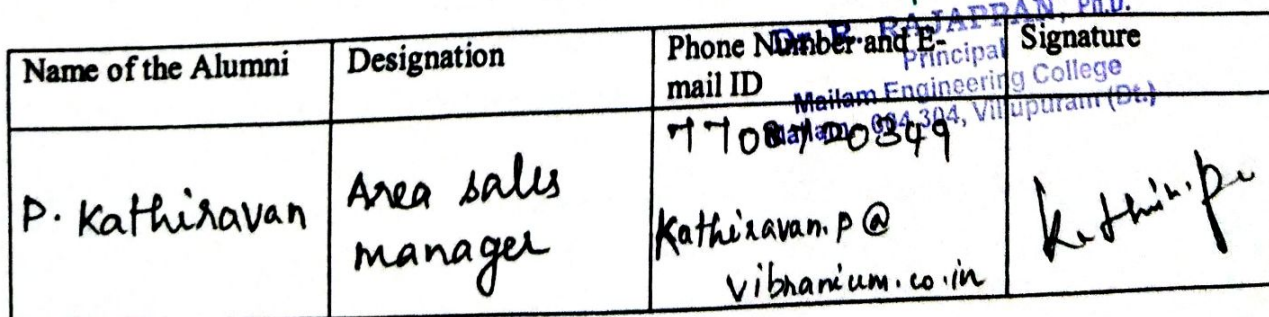 Dr. R. RAJAPPAN, Ph.D.
Principal
Mailam Engineering College
Mailam - 604 304, Villupuram (Dt.)
Name of the Alumni
Designation
Phone Number and E-
mail ID
Signature
P. Kathiravan
Area sales
manager
7708720349
Kathiravan.p@
vibranium.co.in
Kathir.P